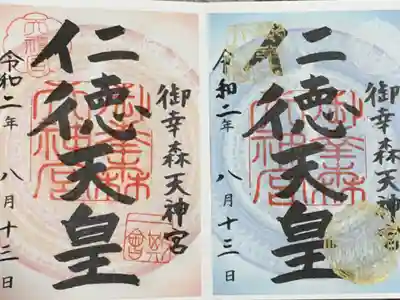 御幸森天神宮
仁徳天皇
令和二年 八月十三日
御幸森天神宮
仁徳天皇
令和二年 八月十三日